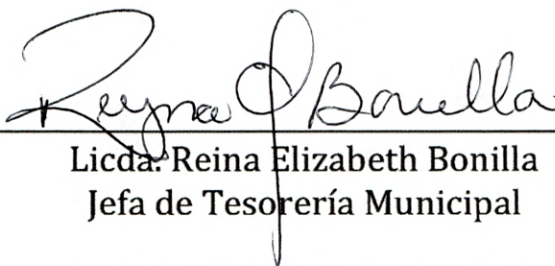 Reyna E Bonilla
Licda. Reina Elizabeth Bonilla
Jefa de Tesorería Municipal